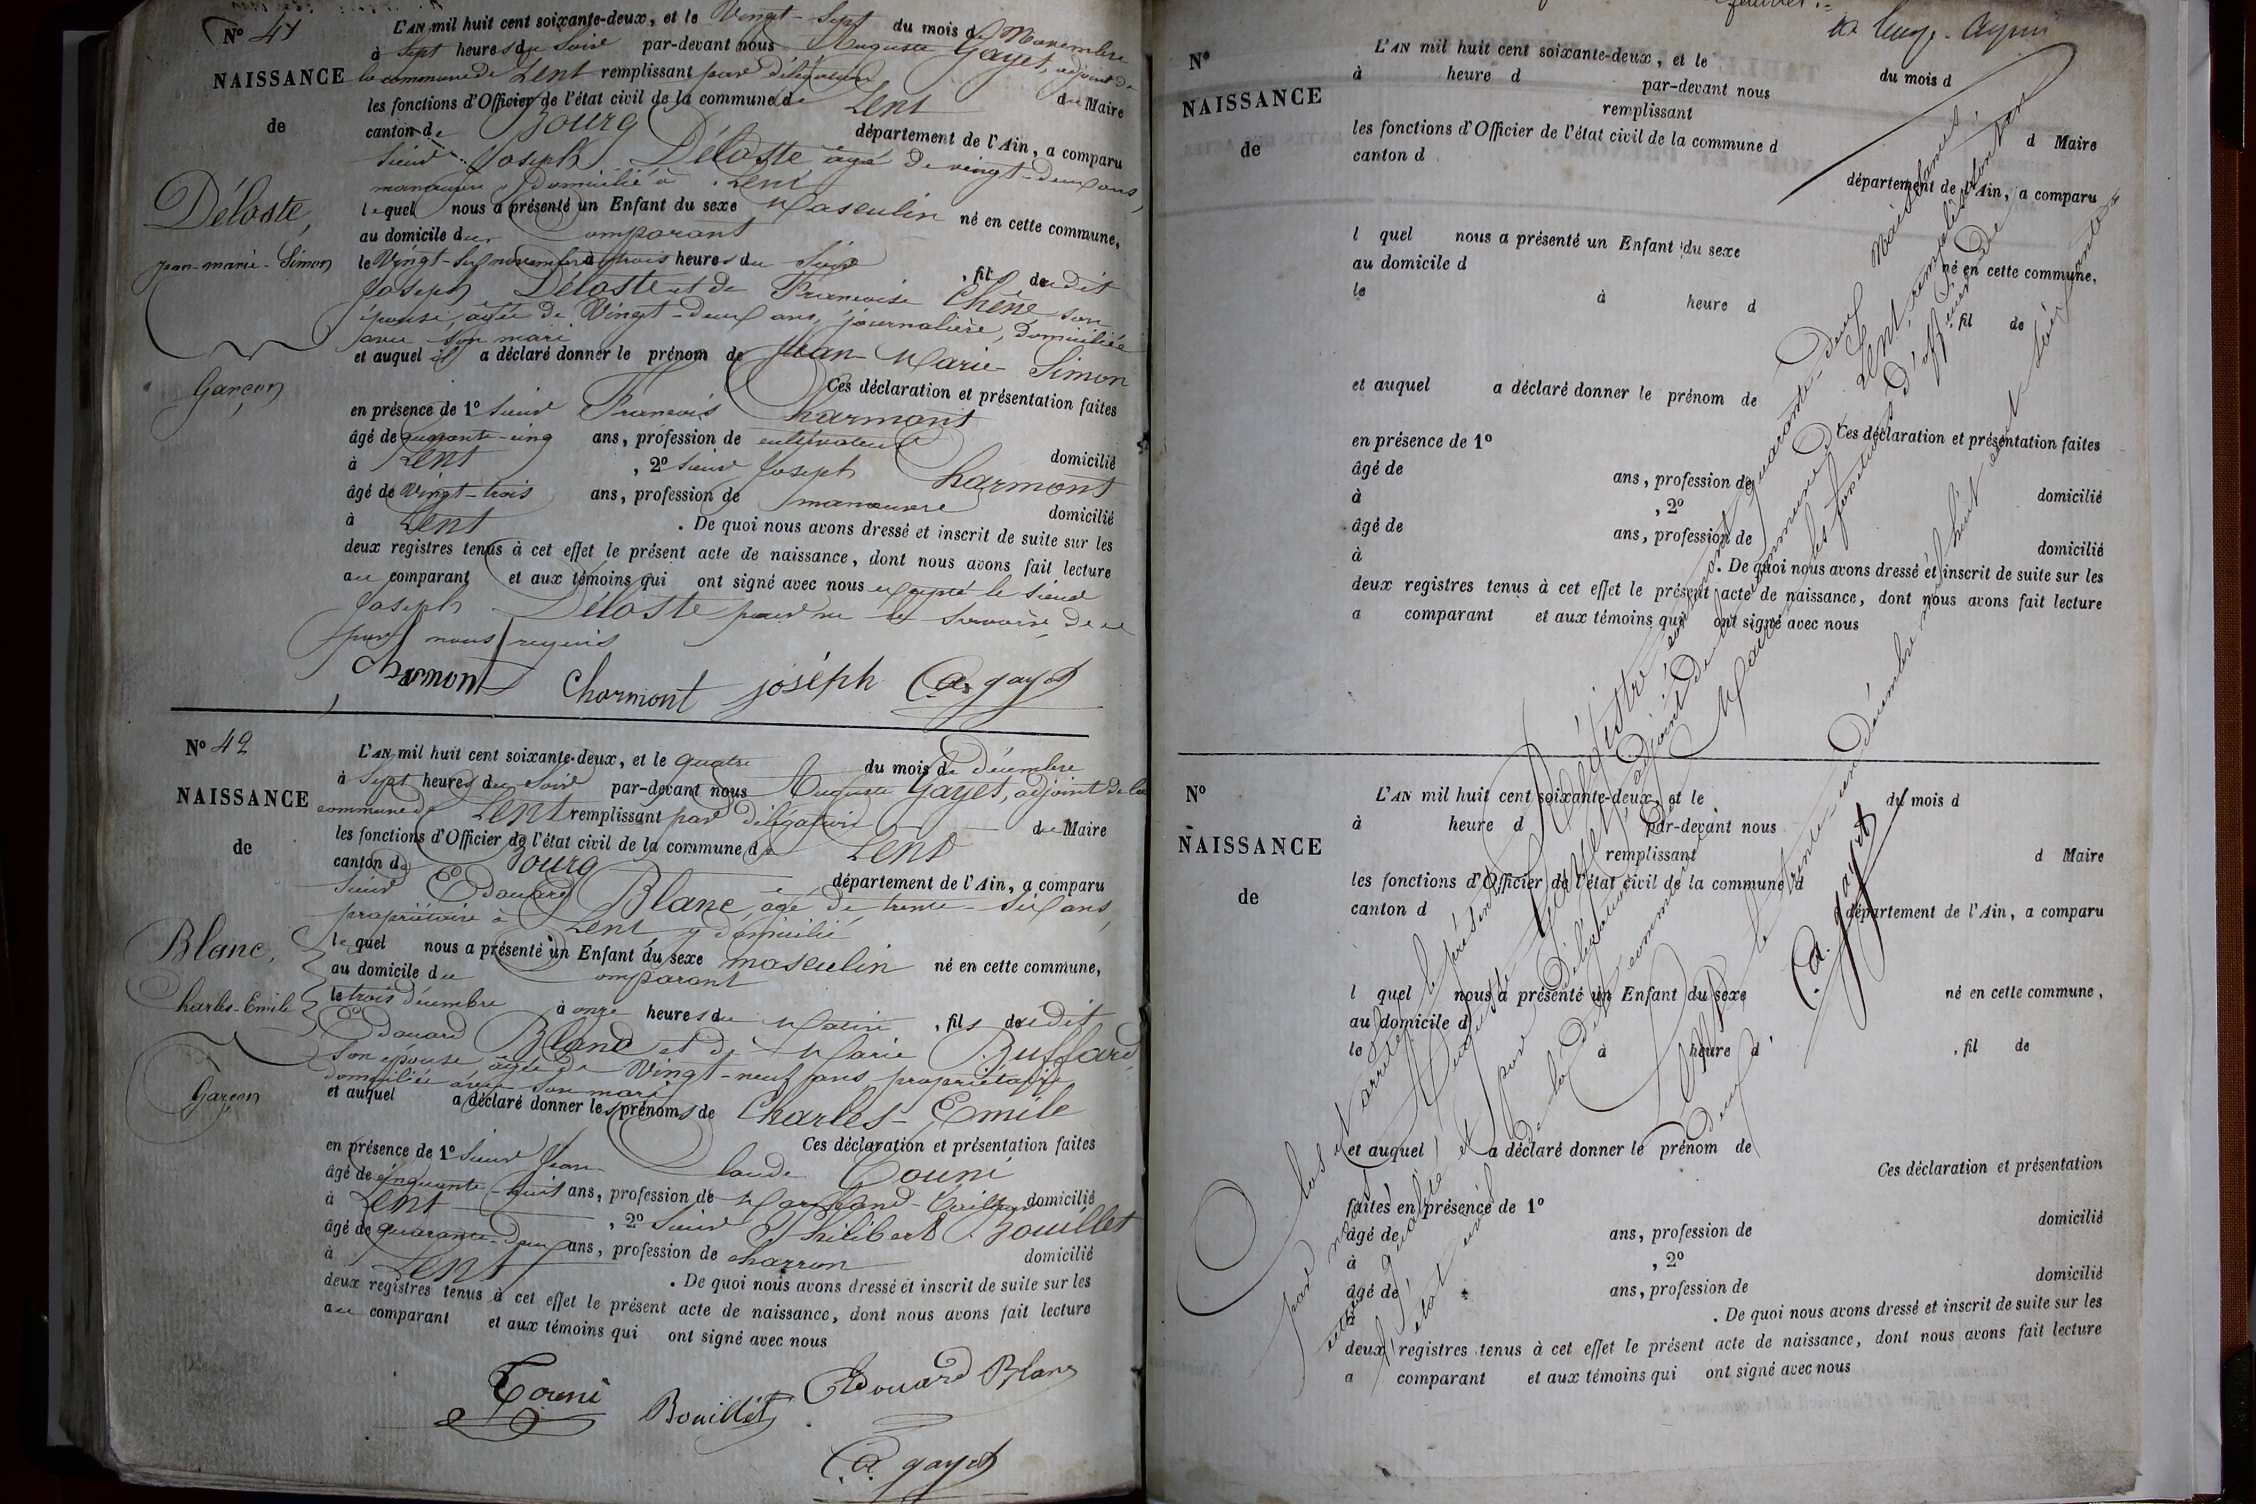 N° 41
NAISSANCE
de
Déloste,
Jean-marie-Simon
Garçon
L'AN mil huit cent soixante-deux, et le Vingt-Sept du mois de Novembre
à Sept heures du Soir par-devant nous Auguste Gayet, adjoint de
la commune de Lent remplissant par délégation du Maire
les fonctions d'Officier de l'état civil de la commune de Lent
canton de Bourg département de l'Ain, a comparu
Sieur Joseph Déloste âgé de vingt-deux ans,
manœuvre, domicilié à Lent
lequel nous a présenté un Enfant du sexe Masculin né en cette commune,
au domicile du Comparant
le Vingt-Six novembre à trois heures du Soir, fils dudit
Joseph Déloste et de Francoise Chêne son
épouse, agée de Vingt-deux ans, journalière, domiciliée
avec son mari
et auquel il a déclaré donner le prénom de Jean-Marie-Simon
Ces déclaration et présentation faites
en présence de 1° Sieur Francois Charmont
âgé de quarante-cinq ans, profession de cultivateur domicilié
à Lent, 2° Sieur Joseph Charmont
âgé de Vingt-trois ans, profession de manœuvre domicilié
à Lent. De quoi nous avons dressé et inscrit de suite sur les
deux registres tenus à cet effet le présent acte de naissance, dont nous avons fait lecture
au comparant et aux témoins qui ont signé avec nous excepté le Sieur
Joseph Déloste pour ne le Savoir, de ce
par nous requis
Charmont Charmont joséph A. gayet
N° 42
NAISSANCE
de
Blanc,
Charles-Emile
Garçon
L'AN mil huit cent soixante-deux, et le quatre du mois de décembre
à Sept heures du Soir par-devant nous Auguste Gayet, adjoint de la
commune de Lent remplissant par délégation du Maire
les fonctions d'Officier de l'état civil de la commune de Lent
canton de Bourg département de l'Ain, a comparu
Sieur Edouard Blanc, âgé de trente-Six ans,
propriétaire à Lent y domicilié
lequel nous a présenté un Enfant du sexe masculin né en cette commune,
au domicile du Comparant
le trois décembre à onze heures du Matin, fils dudit
Edouard Blanc et de Marie Buffard,
Son épouse âgée de Vingt-neuf ans propriétaire
domiciliée avec Son mari
et auquel a déclaré donner les prénoms de Charles-Emile
Ces déclaration et présentation faites
en présence de 1° Sieur Jean Claude Touni
âgé de cinquante-huit ans, profession de Marchand-Tailleur domicilié
à Lent, 2° Sieur Philibert Bouillet
âgé de quarante-deux ans, profession de charron domicilié
à Lent. De quoi nous avons dressé et inscrit de suite sur les
deux registres tenus à cet effet le présent acte de naissance, dont nous avons fait lecture
au comparant et aux témoins qui ont signé avec nous
Touni Bouillet Edouard Blanc
A. gayet
N°
NAISSANCE
de
L'AN mil huit cent soixante-deux, et le du mois d
à heure d par-devant nous
remplissant d Maire
les fonctions d'Officier de l'état civil de la commune d
canton d département de l'Ain, a comparu
l quel nous a présenté un Enfant du sexe né en cette commune,
au domicile d
le à heure d, fil de
et auquel a déclaré donner le prénom de
Ces déclaration et présentation faites
en présence de 1°
âgé de ans, profession de domicilié
à, 2°
âgé de ans, profession de domicilié
à. De quoi nous avons dressé et inscrit de suite sur les
deux registres tenus à cet effet le présent acte de naissance, dont nous avons fait lecture
a comparant et aux témoins qui ont signé avec nous
N°
NAISSANCE
de
L'AN mil huit cent soixante-deux, et le du mois d
à heure d par-devant nous
remplissant d Maire
les fonctions d'Officier de l'état civil de la commune d
canton d département de l'Ain, a comparu
l quel nous a présenté un Enfant du sexe né en cette commune,
au domicile d
le à heure d, fil de
et auquel a déclaré donner le prénom de
Ces déclaration et présentation
faites en présence de 1°
âgé de ans, profession de domicilié
à, 2°
âgé de ans, profession de domicilié
à. De quoi nous avons dressé et inscrit de suite sur les
deux registres tenus à cet effet le présent acte de naissance, dont nous avons fait lecture
a comparant et aux témoins qui ont signé avec nous
Clos et arrêté le présent Régistre contenant quarante-deux Naissances,
par nous Auguste Gayet, adjoint de la commune de Lent, remplissant en
cette qualité et par Délégation du Maire les fonctions d'officier de
l'état civil de la dite commune le trente-un décembre mil huit cent soixante
deux.
A. gayet